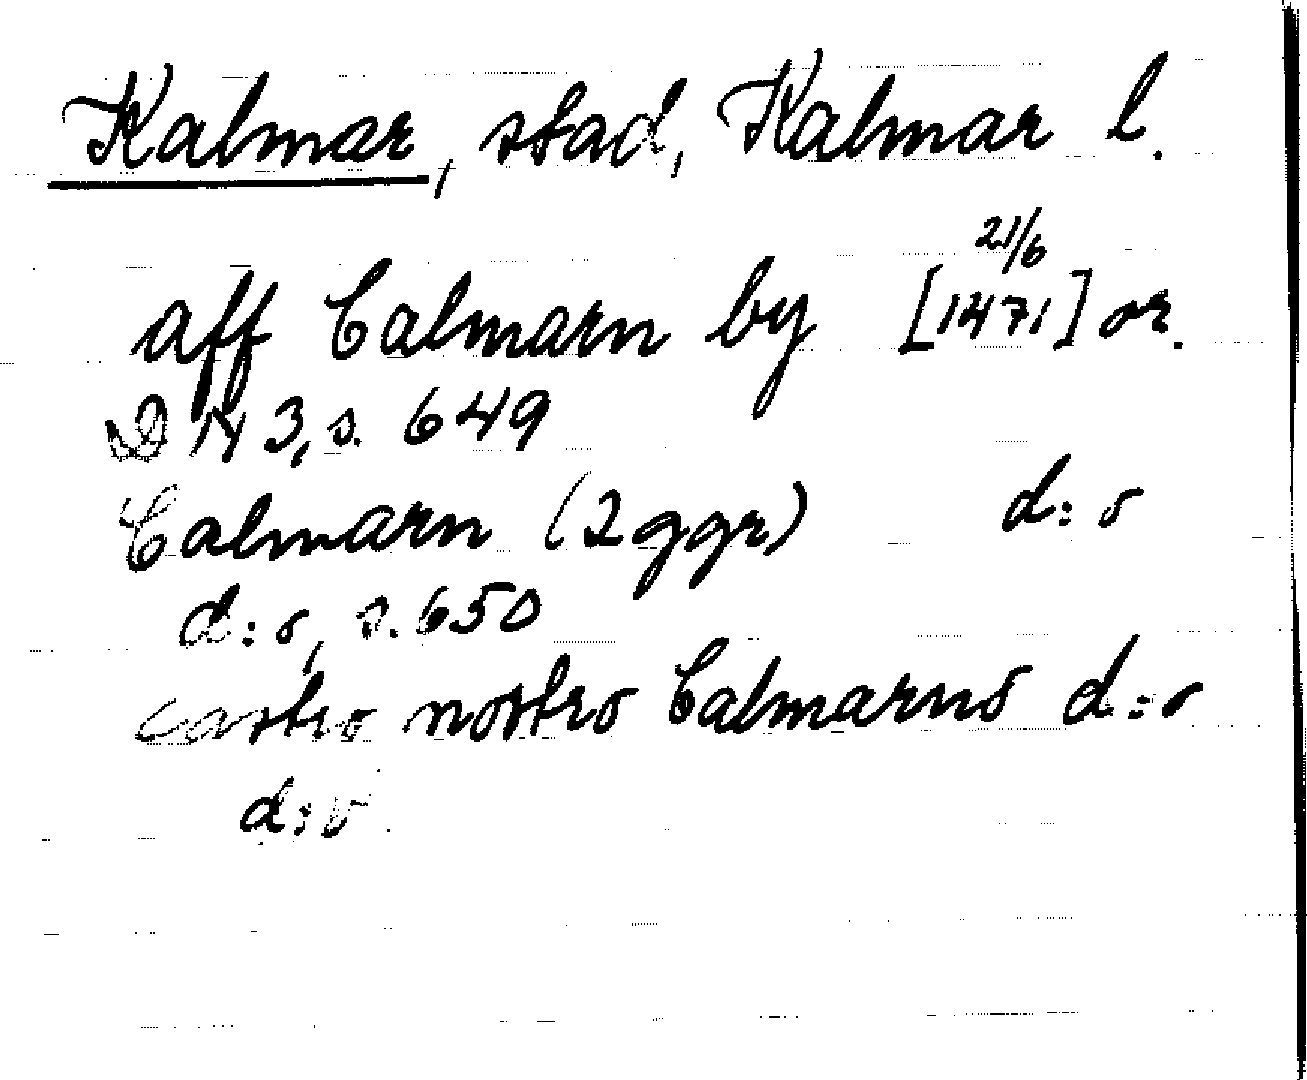 Kalmar, stad, Kalmar l.
aff Calmarn by [1471] 21/6 or.
DN 3, s. 649
Calmarn (2 ggr) d:o
d:o, s. 650
castro nostro Calmarno d:o
d:o